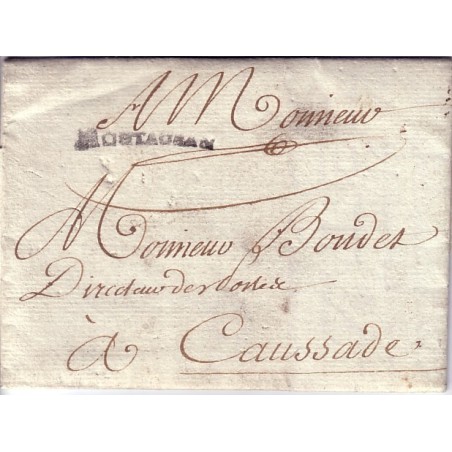 A Monsieur
MONTAUBAN
Monsieur Boudet
Directeur des Postes
à Caussade